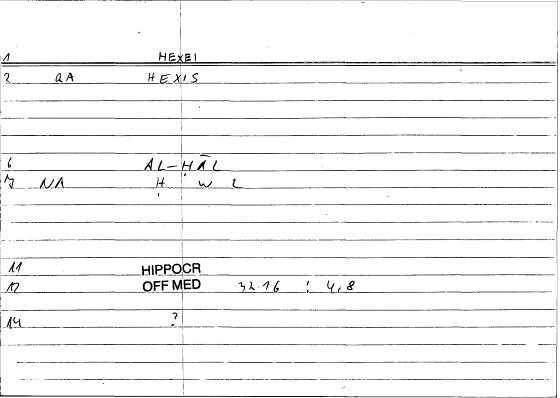 1 HEXEI
2 QA HEXIS
6 AL-ḤĀL
NA Ḥ W L
11 HIPPOCR
12 OFF MED 32.16 : 4,8
14 ?